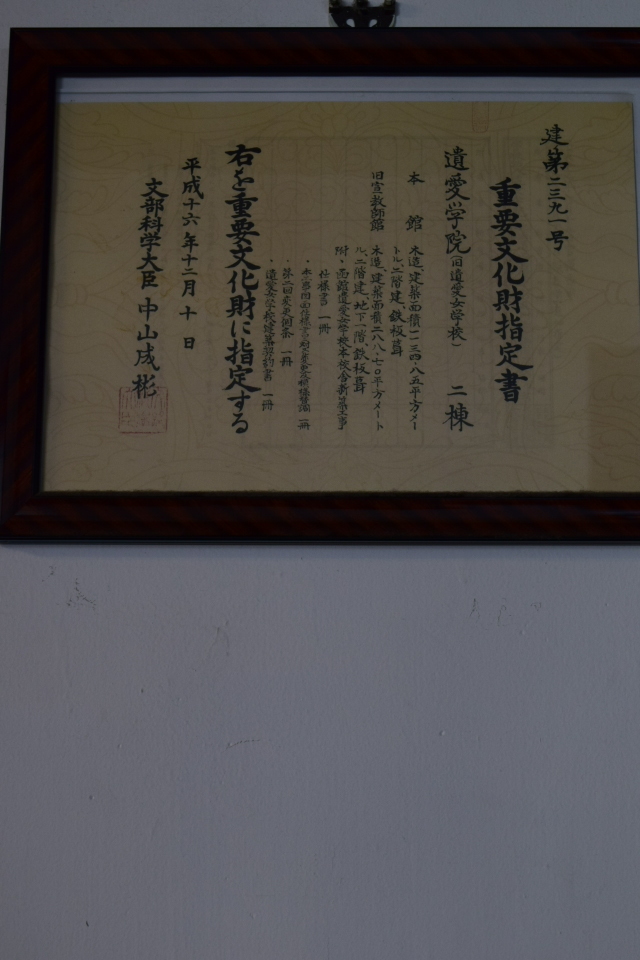 建第二三九一号
重要文化財指定書
遺愛学院(旧遺愛女学校) 二棟
本館 木造、建築面積一一三四・八五平方メー
トル、二階建、鉄板葺
旧宣教師館 木造、建築面積二八八・七〇平方メート
ル、二階建、地下一階、鉄板葺
附・函館遺愛女学校本校舎新築工事
仕様書 一冊
・第二回変更個条 一冊
・遺愛女学校建築契約書 一冊
右を重要文化財に指定する
平成十六年十二月十日
文部科学大臣 中山成彬